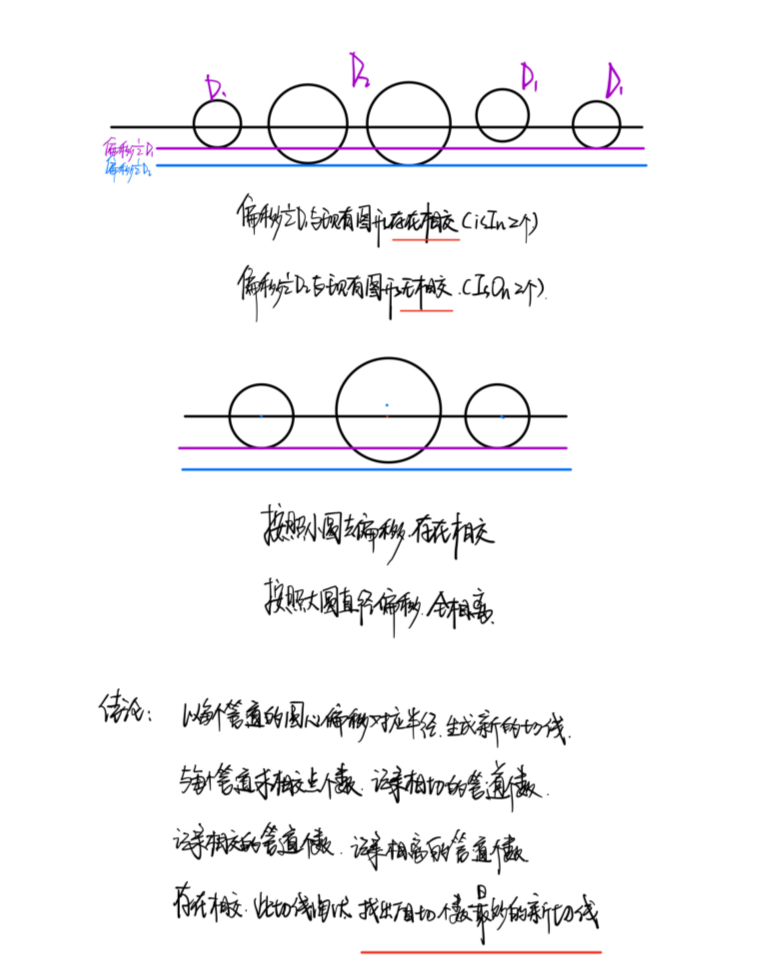 D₁ D₂ D₁ D₁
偏移½D₁
偏移½D₂
偏移½D₁与现有图形存在相交(isIn2个)
偏移½D₂与现有图形无相交.(IsOn2个).
按照小圆去偏移.存在相交
按照大圆直径偏移.全相离.
结论: 以每个管道的圆心偏移对应半径.生成新的切线.
与每个管道求相交点个数.记录相切的管道个数.
记录相交的管道个数.记录相离的管道个数
存在相交.此切线淘汰.找出相切个数最多的新切线